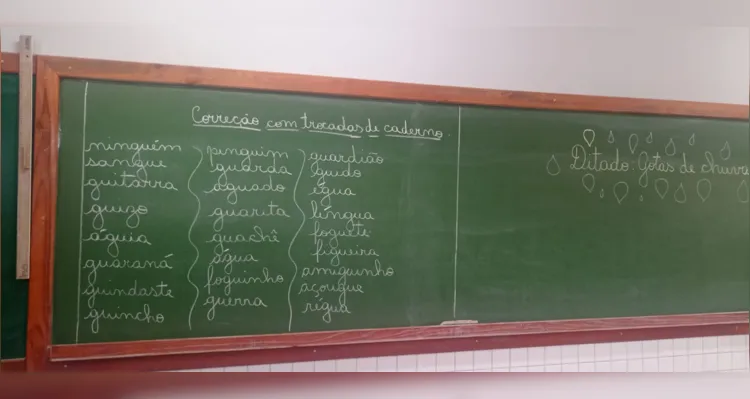 Correção com trocadas de caderno.
ninguém
sangue
guitarra
guizo
águia
guaraná
guindaste
guincho
pinguim
guarda
aguado
guarita
guachê
água
foguinho
guerra
guardião
Guido
égua
língua
foguete
figueira
amiguinho
açougue
régua
Ditado: gotas de chuva